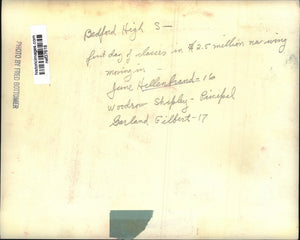 Bedford High S—
first day of classes in $2.5 million new wing
moving in —
June Hellenbrand - 16
Woodrow Shipley - Principal
Garland Gilbert - 17
PHOTO BY FRED BOTTOMER